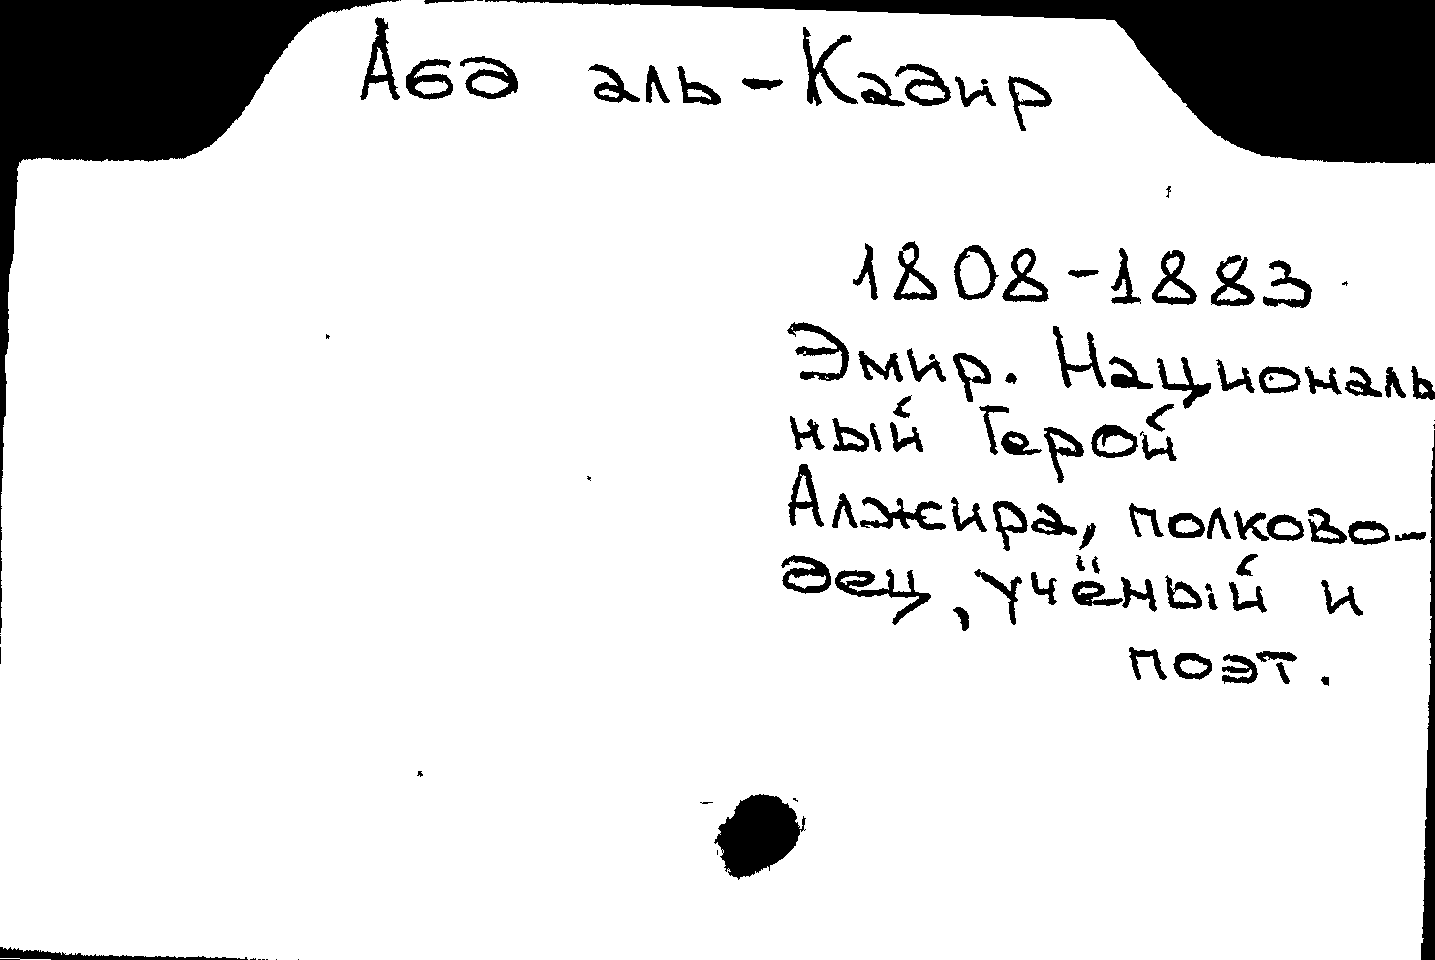 Абд аль-Кадир
1808-1883
Эмир. Националь
ный Герой
Алжира, полково-
дец, учёный и
поэт.